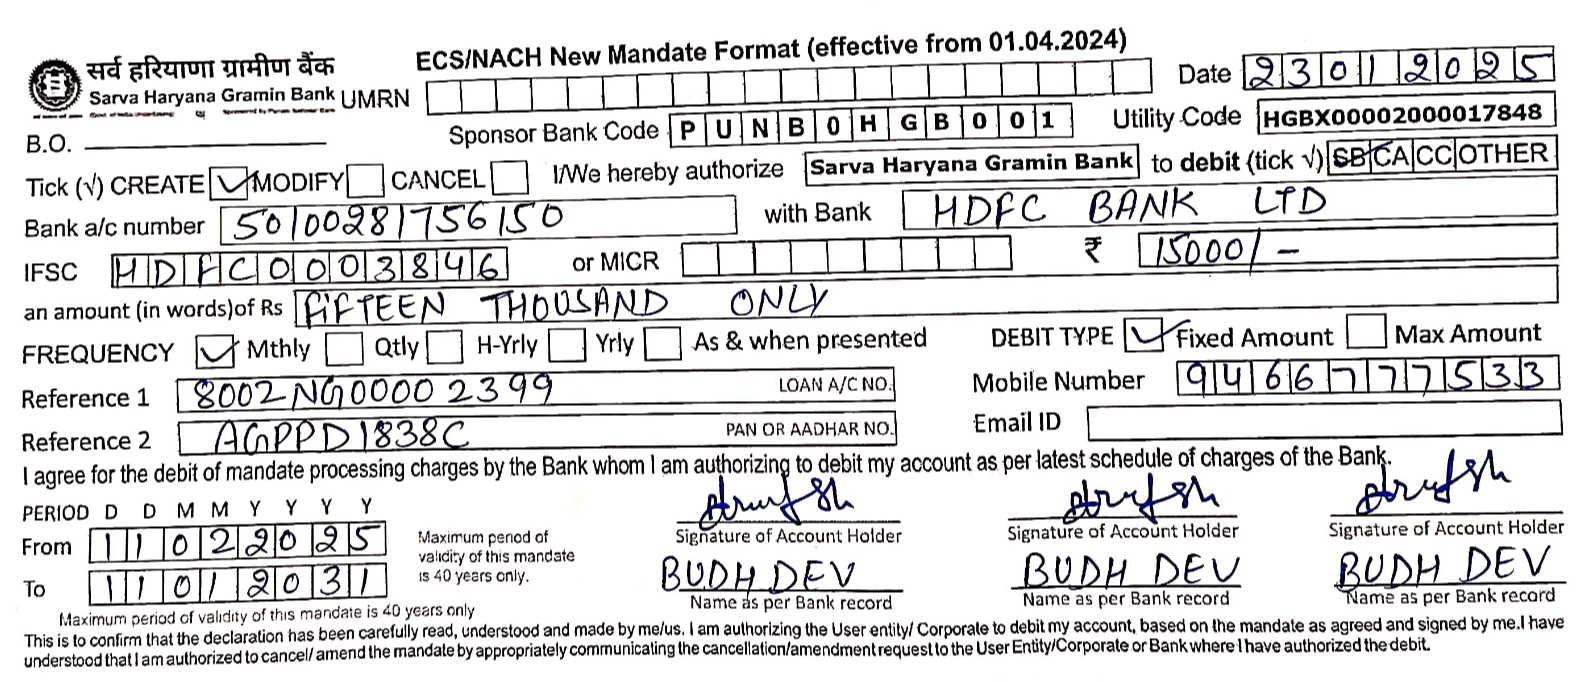 ECS/NACH New Mandate Format (effective from 01.04.2024)
सर्व हरियाणा ग्रामीण बैंक
Sarva Haryana Gramin Bank UMRN Date 23012025
B.O. Sponsor Bank Code PUNB0HGB001 Utility Code HGBX00002000017848
Tick (√) CREATE ✓ MODIFY CANCEL I/We hereby authorize Sarva Haryana Gramin Bank to debit (tick √) SB CA CC OTHER
Bank a/c number 50100281756150 with Bank HDFC BANK LTD
IFSC HDFC0003846 or MICR ₹ 15000/-
an amount (in words)of Rs FIFTEEN THOUSAND ONLY
FREQUENCY ✓ Mthly Qtly H-Yrly Yrly As & when presented DEBIT TYPE ✓ Fixed Amount Max Amount
Reference 1 8002NG00002399 LOAN A/C NO. Mobile Number 9466777533
Reference 2 AGPPD1838C PAN OR AADHAR NO. Email ID
I agree for the debit of mandate processing charges by the Bank whom I am authorizing to debit my account as per latest schedule of charges of the Bank.
PERIOD D D M M Y Y Y Y
From 11022025
To 11012031
Maximum period of
validity of this mandate
is 40 years only.
Signature of Account Holder Signature of Account Holder Signature of Account Holder
BUDH DEV BUDH DEV BUDH DEV
Name as per Bank record Name as per Bank record Name as per Bank record
Maximum period of validity of this mandate is 40 years only
This is to confirm that the declaration has been carefully read, understood and made by me/us. I am authorizing the User entity/ Corporate to debit my account, based on the mandate as agreed and signed by me.I have
understood that I am authorized to cancel/ amend the mandate by appropriately communicating the cancellation/amendment request to the User Entity/Corporate or Bank where I have authorized the debit.